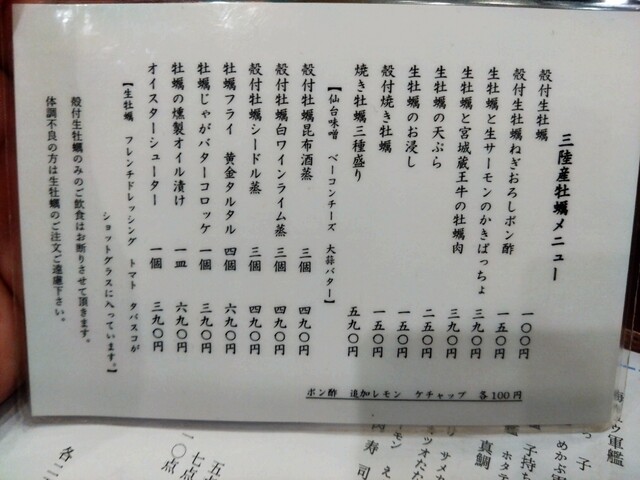 三陸産牡蠣メニュー
殻付生牡蠣 一〇〇円
殻付生牡蠣ねぎおろしポン酢 一五〇円
生牡蠣と生サーモンのかきばっちょ 三九〇円
生牡蠣と宮城蔵王牛の牡蠣肉 三九〇円
生牡蠣の天ぷら 二五〇円
生牡蠣のお浸し 一五〇円
殻付焼き牡蠣 一五〇円
焼き牡蠣三種盛り 五九〇円
【仙台味噌 ベーコンチーズ 大蒜バター】
殻付牡蠣昆布酒蒸 三個 四九〇円
殻付牡蠣白ワインライム蒸 三個 四九〇円
殻付牡蠣シードル蒸 三個 四九〇円
牡蠣フライ 黄金タルタル 四個 六九〇円
牡蠣じゃがバターコロッケ 一個 三九〇円
牡蠣の燻製オイル漬け 一皿 六九〇円
オイスターシューター 一個 三九〇円
【生牡蠣 フレンチドレッシング トマト タバスコが
ショットグラスに入っています。】
殻付生牡蠣のみのご飲食はお断りさせて頂きます。
体調不良の方は生牡蠣のご注文ご遠慮下さい。
ポン酢 追加レモン ケチャップ 各100円
軍艦
めかぶ軍
子持ち
ホタテ
真鯛
サメカ
肉寿司
一〇点
七点
各二